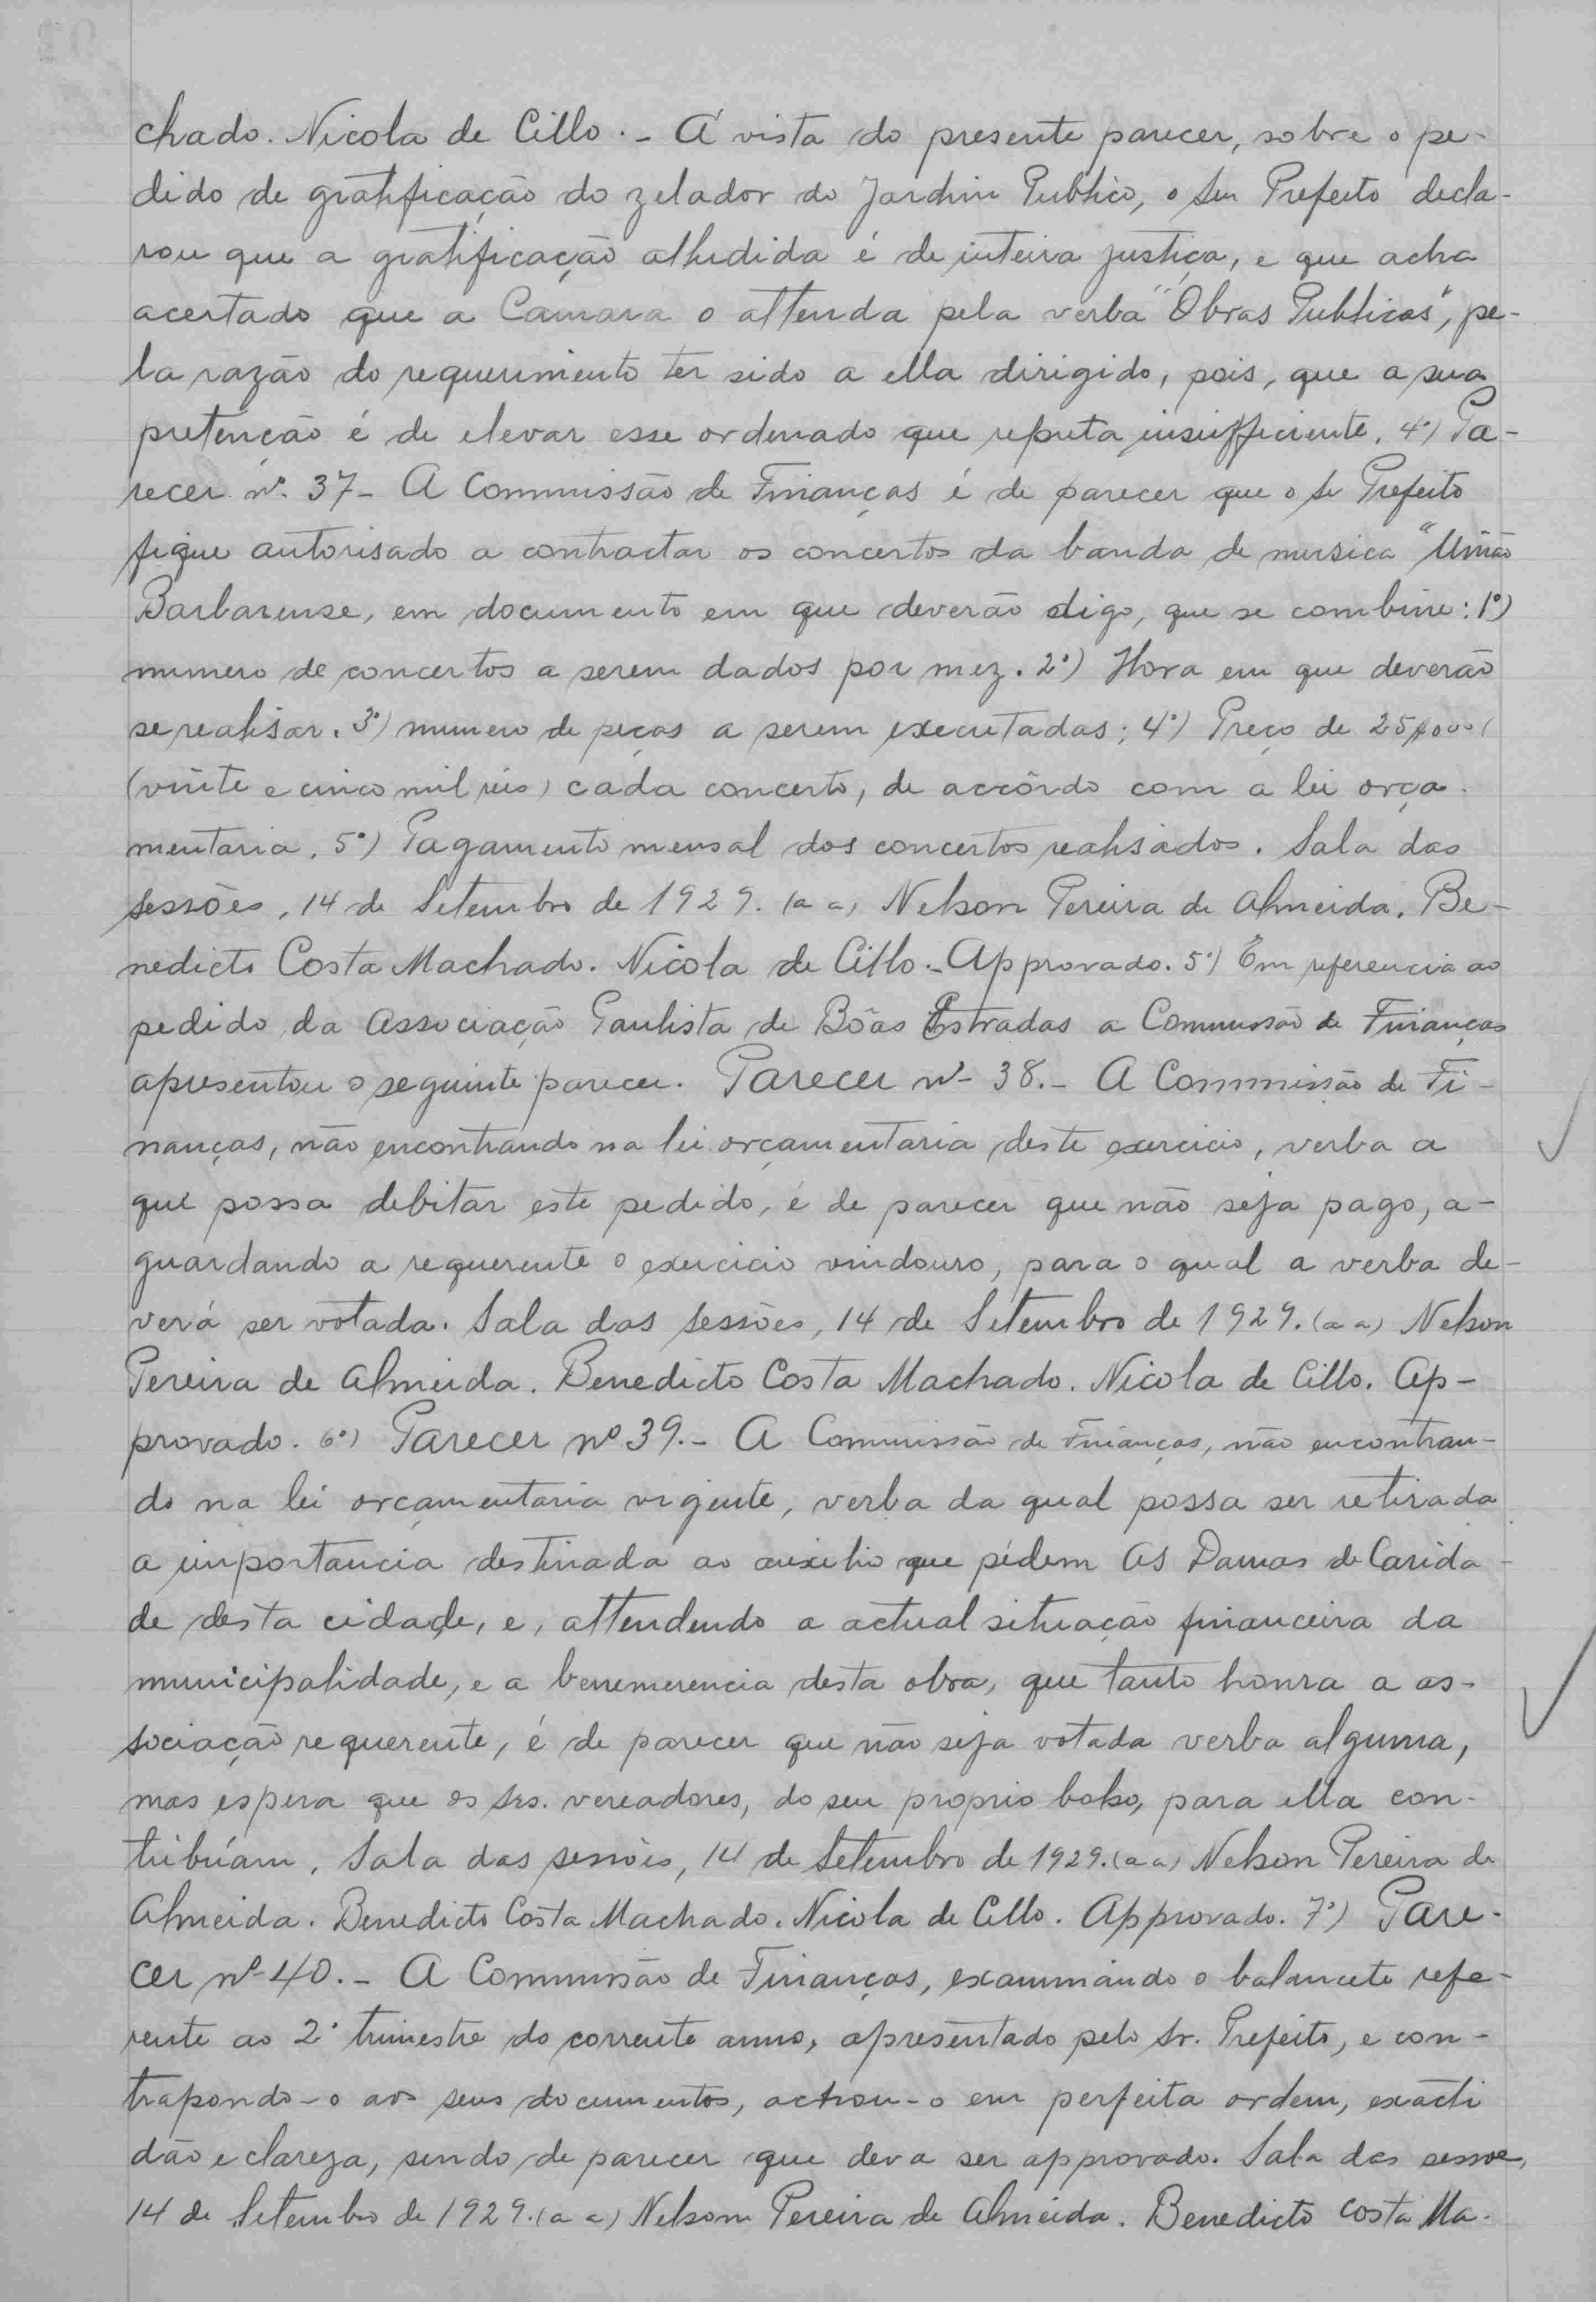 chado. Nicola de Cillo. - Á vista do presente parecer, sobre o pe-
dido de gratificação do zelador do Jardim Publico, o Snr Prefeito decla-
rou que a gratificação alludida é de inteira justiça, e que acha
acertado que a Camara o attenda pela verba "Obras Publicas", pe-
la razão do requerimento ter sido a ella dirigido, pois, que a sua
pretenção é de elevar esse ordenado que reputa insufficiente. 4º) Pa-
recer nº. 37 - A Commissão de Finanças é de parecer que o Sr Prefeito
fique autorisado a contractar os concertos da banda de musica "União
Barbarense, em documento em que deverão digo, que se combine: 1º)
numero de concertos a serem dados por mez. 2º) Hora em que deverão
se realisar. 3º) numero de peças a serem executadas; 4º) Preço de 25$000 (
(vinte e cinco mil reis) cada concerto, de accôrdo com a lei orça-
mentaria. 5º) Pagamento mensal dos concertos realisados. Sala das
sessões, 14 de Setembro de 1929. (a a) Nelson Pereira de Almeida. Be-
nedicto Costa Machado. Nicola de Cillo. - Approvado. 5º) Em referencia ao
pedido da Associação Paulista de Bôas Estradas a Commissão de Finanças
apresentou o seguinte parecer. Parecer nº 38. - A Commissão de Fi-
nanças, não encontrando na lei orçamentaria deste exercicio, verba a
que possa debitar este pedido, é de parecer que não seja pago, a-
guardando a requerente o exercicio vindouro, para o qual a verba de-
verá ser votada. Sala das sessões, 14 de Setembro de 1929. (a a) Nelson
Pereira de Almeida. Benedicto Costa Machado. Nicola de Cillo. Ap-
provado. 6º) Parecer nº 39. - A Commissão de Finanças, não encontran-
do na lei orçamentaria vigente, verba da qual possa ser retirada
a importancia destinada ao auxilio que pédem As Damas de Carida-
de desta cidade, e, attendendo a actual situação financeira da
municipalidade, e a benemerencia desta obra, que tanto honra a as-
sociação requerente, é de parecer que não seja votada verba alguma,
mas espera que os srs. vereadores, do seu proprio bolso, para ella con-
tribúam. Sala das sessões, 14 de Setembro de 1929. (a a) Nelson Pereira de
Almeida. Benedicto Costa Machado. Nicola de Cillo. Approvado. 7º) Pare-
cer nº 40. - A Commissão de Finanças, examinando o balancete refe-
rente ao 2º trimestre do corrente anno, apresentado pelo Sr. Prefeito, e con-
trapondo-o aos seus documentos, achou-o em perfeita ordem, exacti
dão e clareza, sendo de parecer que deva ser approvado. Sala das sessoe,
14 de Setembro de 1929. (a a) Nelson Pereira de Almeida. Benedicto Costa Ma-